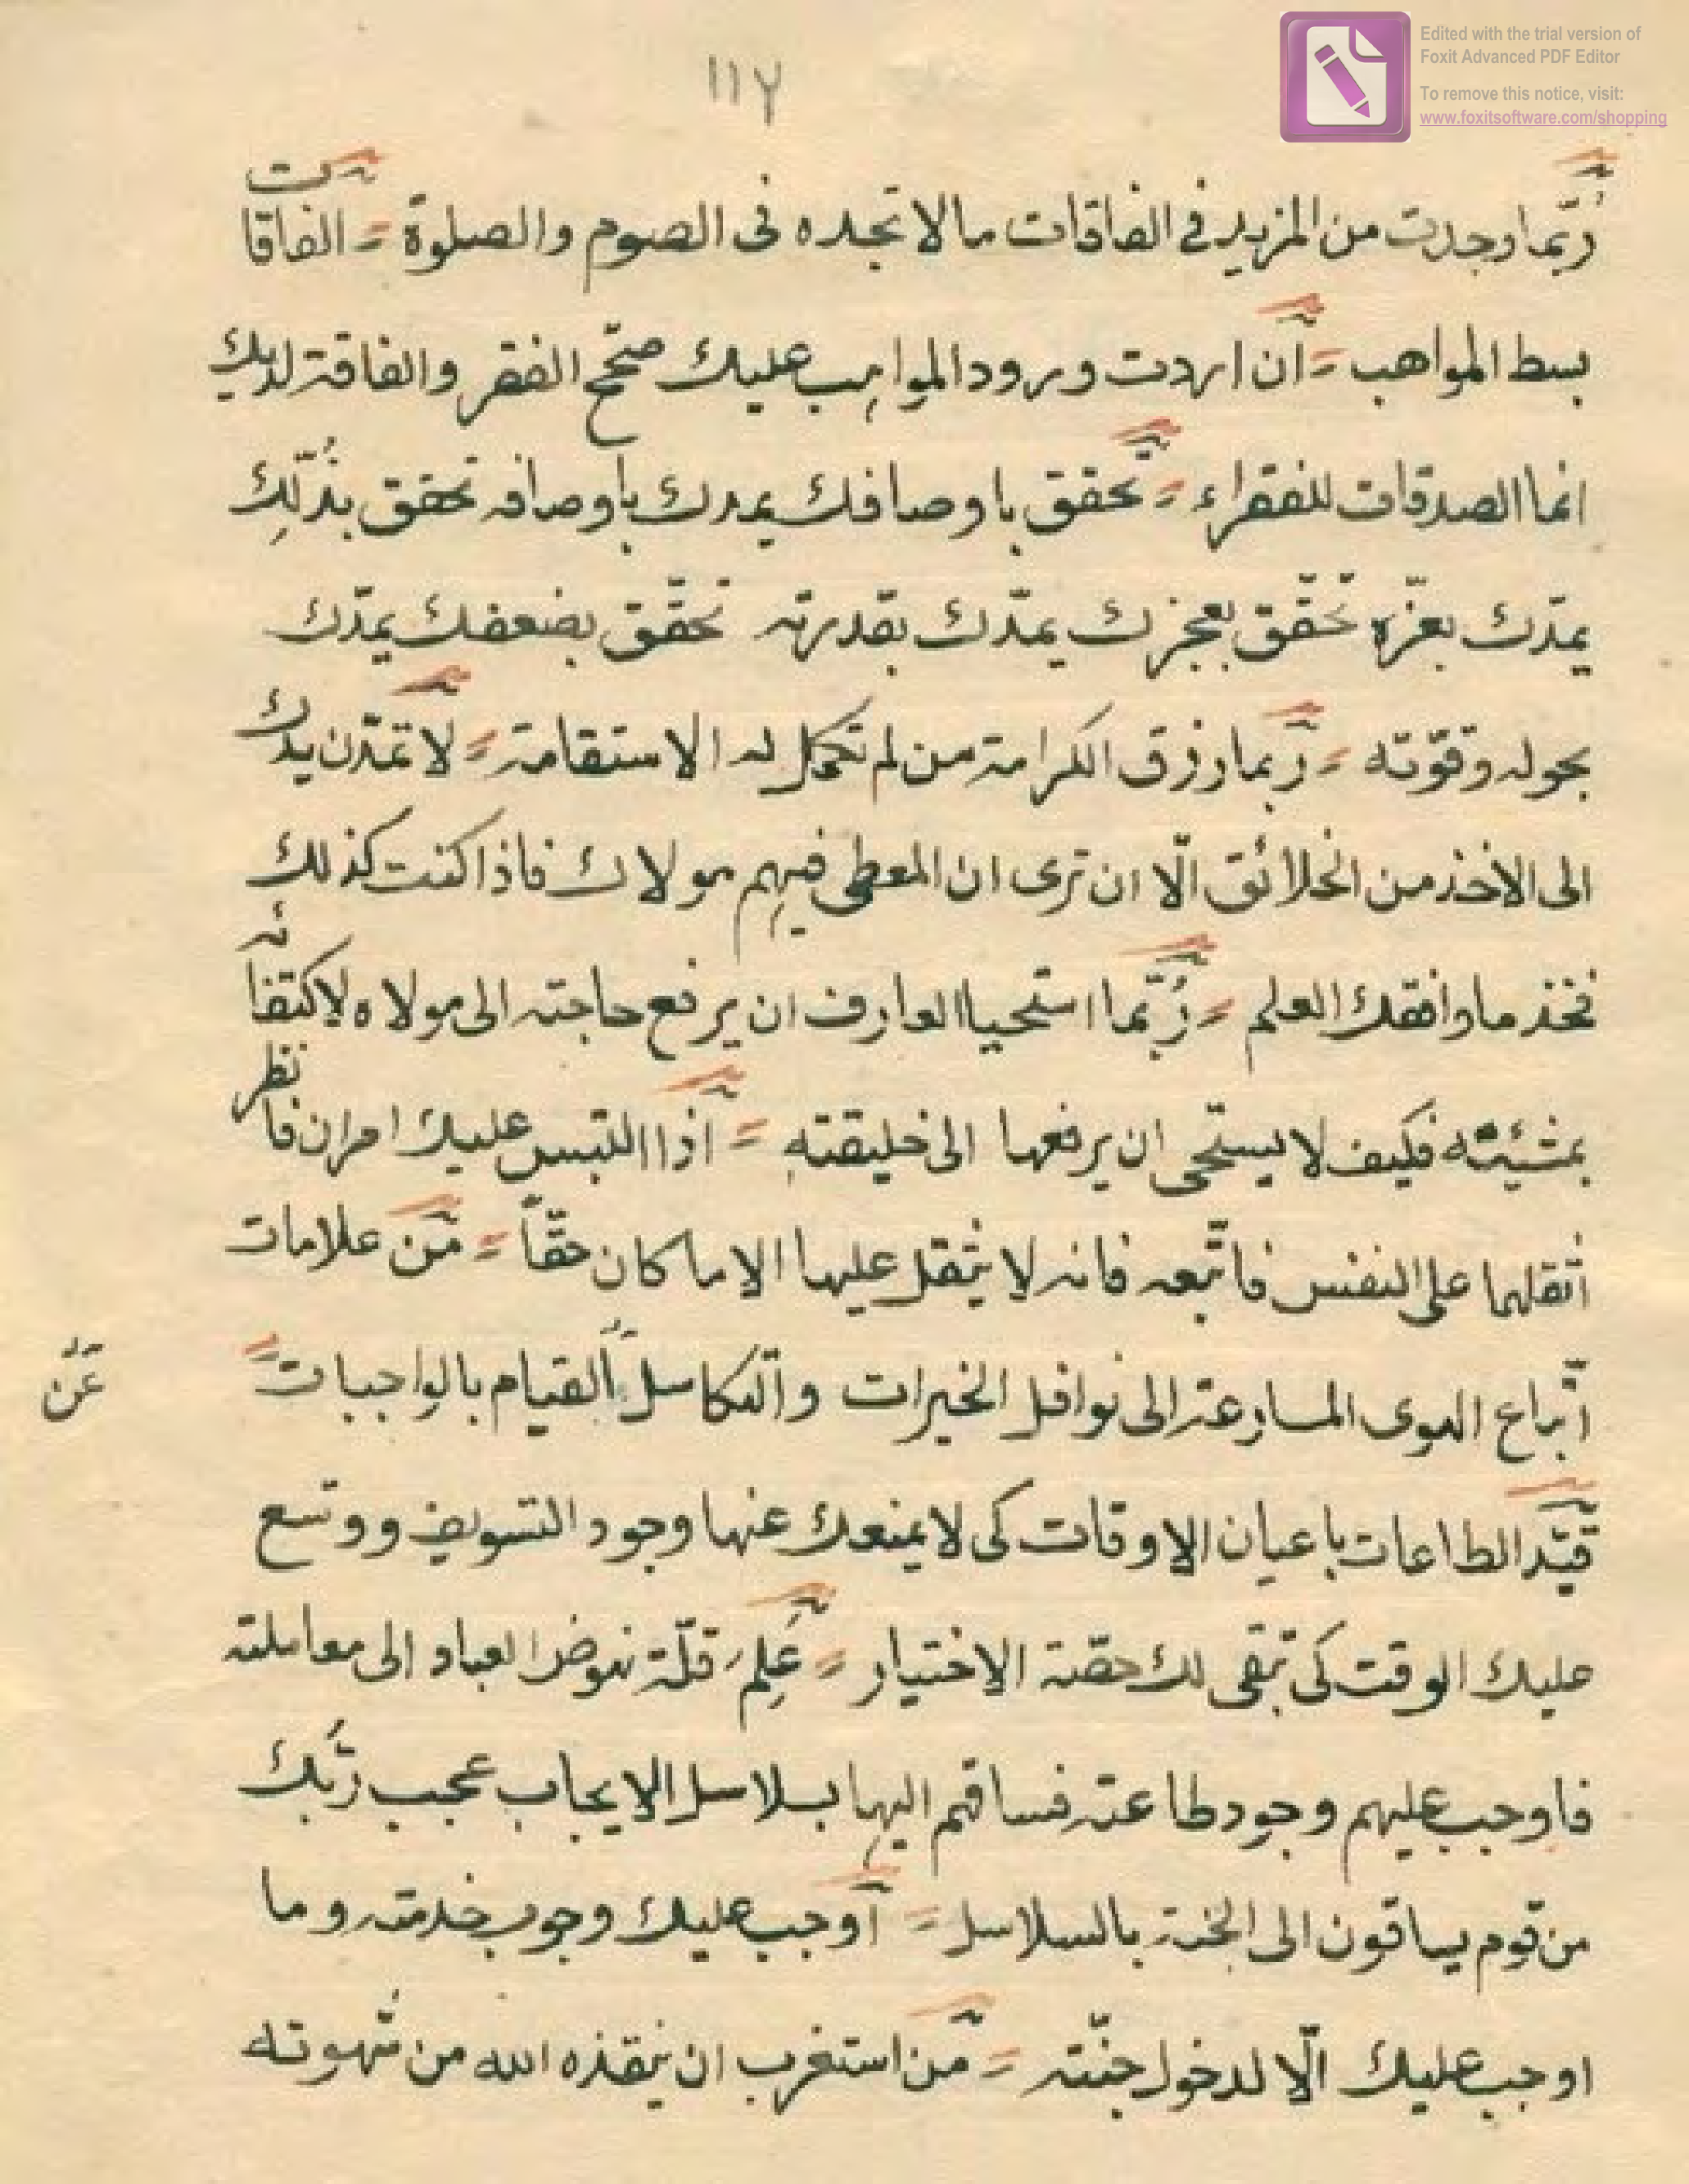 Edited with the trial version of
Foxit Advanced PDF Editor
To remove this notice, visit:
www.foxitsoftware.com/shopping
١١٧
رُبّما وجدت من المزيد فى الفاقات ما لا تجده فى الصوم والصلوة = الفاقات
بسط المواهب = ان اردت ورود المواهب عليك صحّح الفقر والفاقة لديك
انما الصدقات للفقراء = تحقق باوصافك يمدك باوصافه تحقق بذُلّكِ
يمدّك بعزّه تحقّق بعجزك يمدّك بقدرته تحقّق بضعفك يمدّك
بحوله وقوّته = ربّما رزق الكرامة من لم تكمل له الاستقامة = لا تمدّن يدك
الى الاخذ من الخلائق الّا ان ترى ان المعطى فيهم مولاك فاذا كنت كذلك
فخذ ما وافقك العلم = رُبّما استحيا العارف ان يرفع حاجته الى مولاه لاكتفائه
بمشيّته فكيف لا يستحى ان يرفعها الى خليقته = اذا التبس عليك امران فانظر
أثقلهما على النفس فاتّبعه فانه لا يثقل عليها الا ما كان حقّاً = من علامات
اتّباع الهوى المسارعة الى نوافل الخيرات والتكاسل القيام بالواجبات =
عَن
قيّد الطاعات باعيان الاوقات كى لا يمنعك عنها وجود التسويف ووسّع
عليك الوقت كى تبقى لك حصّة الاختيار = عَلِمَ قلّة نهوض العباد الى معاملته
فاوجب عليهم وجود طاعته فساقهم اليها بسلاسل الايجاب عجب ربّك
من قوم يساقون الى الجنة بالسلاسل = اوجب عليك وجود خدمته وما
اوجب عليك الّا لدخول جنّته = من استغرب ان ينقذه الله من شهوته